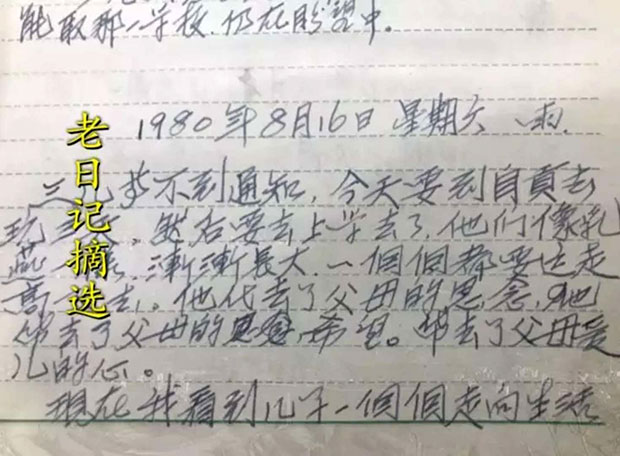 能取那一学校,仍在盼望中。
1980年8月16日 星期六 雨.
三儿 不到通知,今天要到自貢去
玩 ,然后要去上学去了,他们像乳
燕 ,漸漸長大,一個個都要远走
高 去,。他代去了父母的思念,他
带去了父母的 希望。带去了父母爱
儿的心。
現在我看到儿子一個個走向生活
老日记摘选